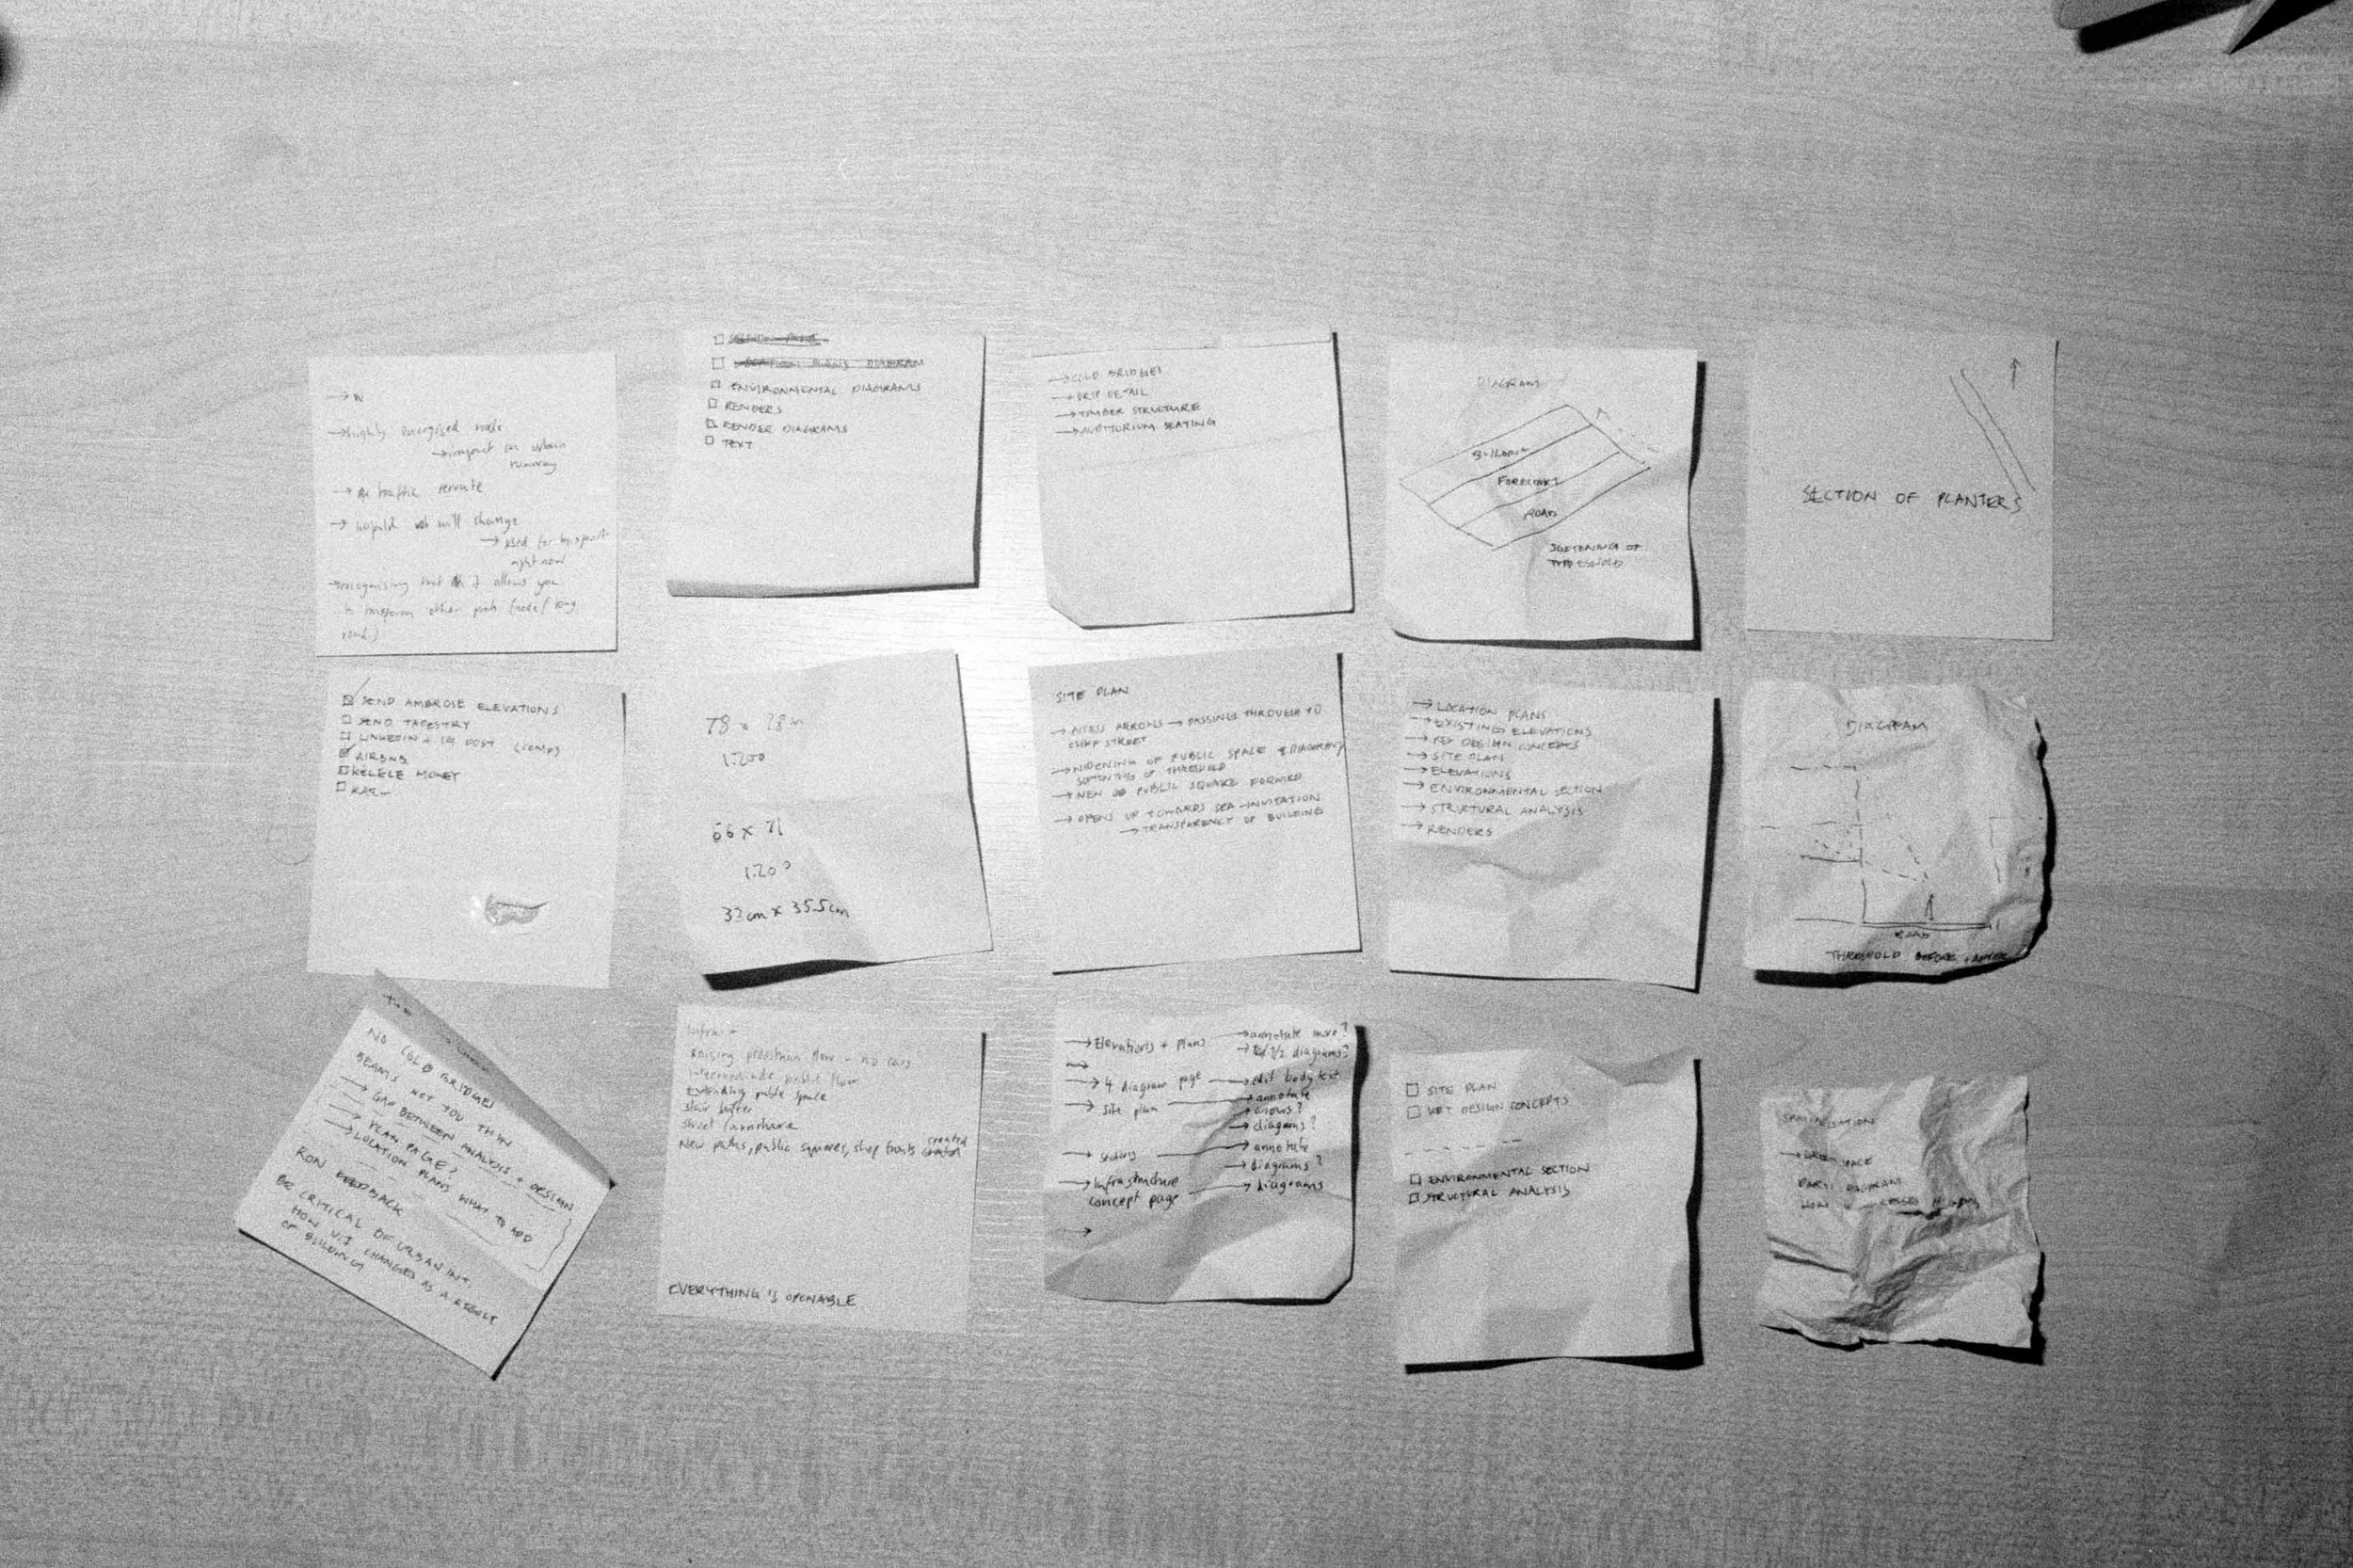 → highly energised node
→ impact on urban
runway
→ traffic reroute
→ will change
→ used for
right now
→ recognising that it allows you
to transform other path (node/long
road)
ENVIRONMENTAL DIAGRAMS
RENDERS
RENDER DIAGRAMS
TEXT
→ COLD BRIDGES
→ DRIP DETAIL
→ TIMBER STRUCTURE
→ AUDITORIUM SEATING
DIAGRAM
BUILDING
FORECOURT
ROAD
SOFTENING OF
THRESHOLD
SECTION OF PLANTERS
SEND AMBROSE ELEVATIONS
SEND TAPESTRY
LINKEDIN + IG POST (COMP)
AIRBNB
KELELE MONEY
78 x 78m
1:200
66 x 71
1:200
33cm x 35.5cm
SITE PLAN
→ ACCESS ARROWS → PASSINGS THROUGH TO
CLIFF STREET
→ WIDENING OF PUBLIC SPACE & DIAGRAM
SOFTENING OF THRESHOLD
→ NEW PUBLIC SQUARE FORMED
→ OPENS UP TOWARDS SEA - INVITATION
→ TRANSPARENCY OF BUILDING
→ LOCATION PLANS
→ EXISTING ELEVATIONS
→ KEY DESIGN CONCEPTS
→ SITE PLAN
→ ELEVATIONS
→ ENVIRONMENTAL SECTION
→ STRUCTURAL ANALYSIS
→ RENDERS
DIAGRAM
ROAD
THRESHOLD BEFORE + AFTER
NO COLD BRIDGES
BEAMS NOT TOO THIN
→ GAP BETWEEN ANALYSIS + DESIGN
→ PLAN PAGE?
→ LOCATION PLANS WHAT TO ADD
RON FEEDBACK
BE CRITICAL OF URBAN INT.
HOW U.I CHANGES AS A RESULT
OF BUILDING
Infra -
Raising pedestrian flow - no cars
Intermediate public floor
Extending public space
stair buffer
street furniture
New paths, public squares, shop fronts created
EVERYTHING IS OPENABLE
→ Elevations + plans → annotate more?
→ 1/2 diagrams?
→ 4 diagram page → edit body text
→ site plan → annotate
→ arrows?
→ diagrams?
→ sections → annotate
→ diagrams?
→ Infrastructure
concept page → diagrams
→
SITE PLAN
KEY DESIGN CONCEPTS
ENVIRONMENTAL SECTION
STRUCTURAL ANALYSIS
SPACE
PARTI DIAGRAM
HOW